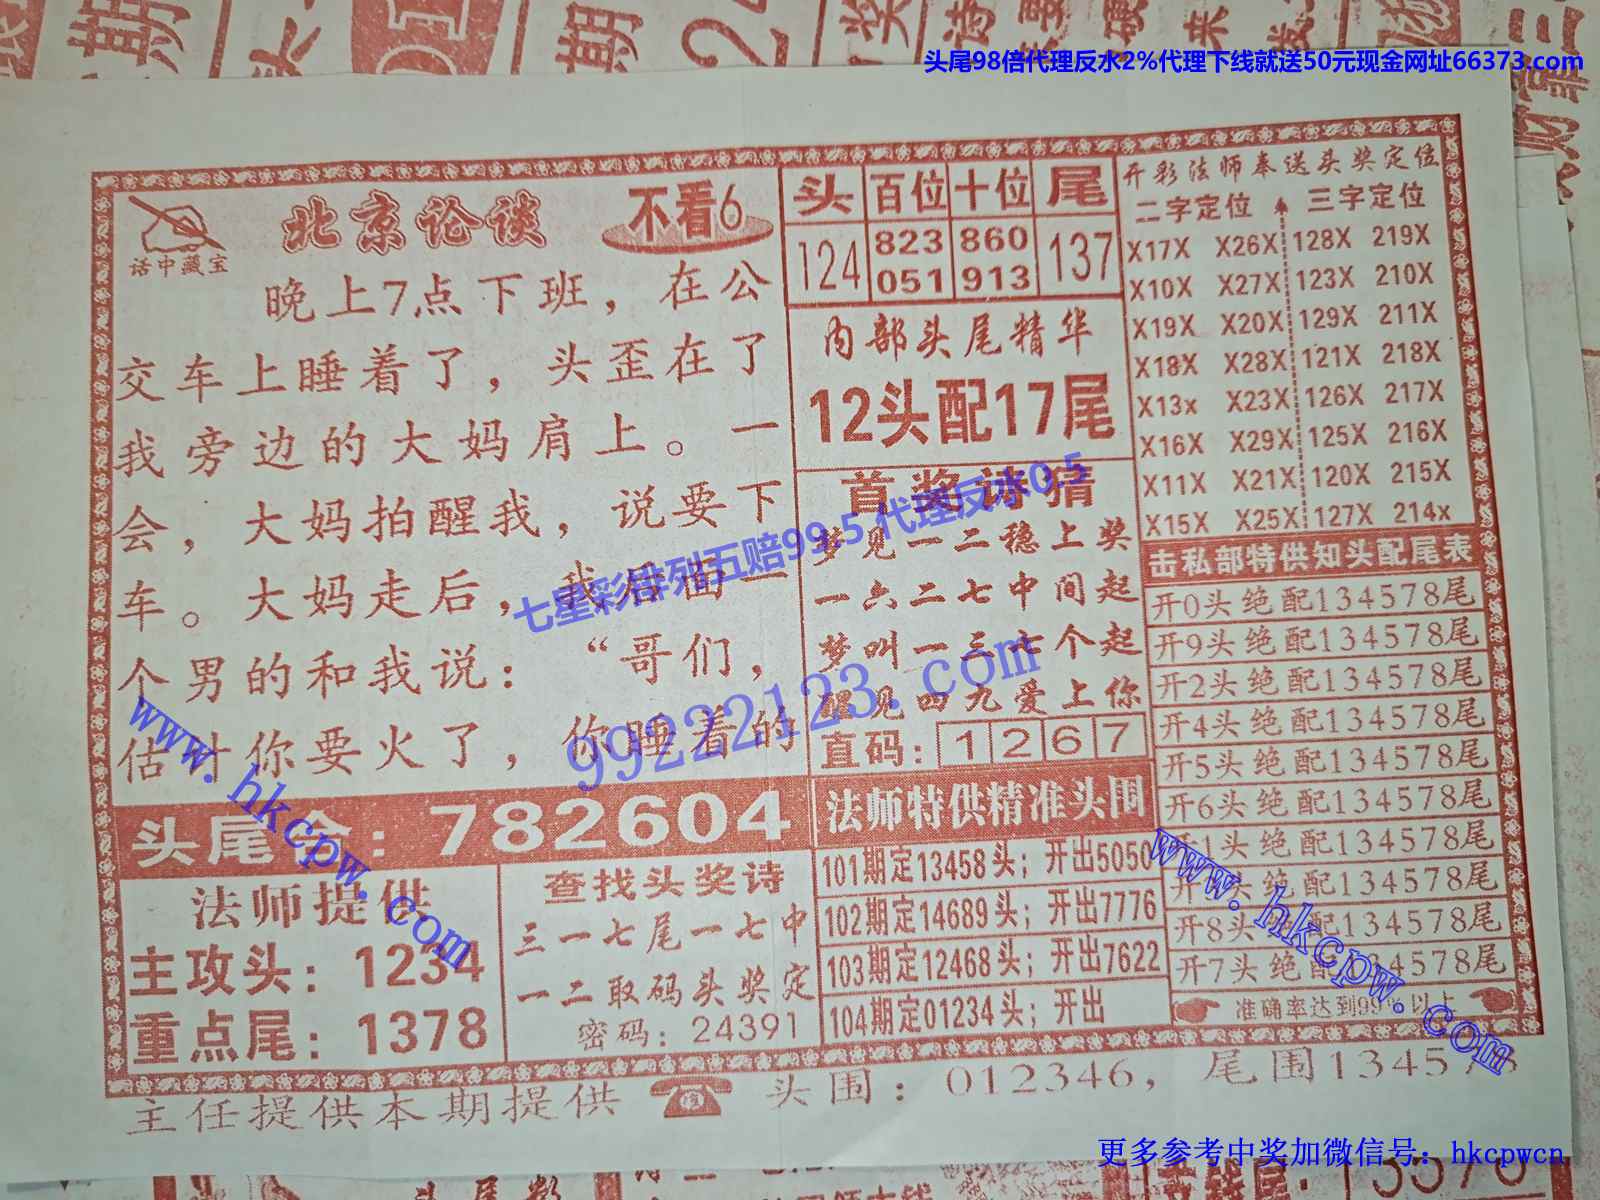 头尾98倍代理反水2%代理下线就送50元现金网址66373.com
话中藏宝
北京论谈
不看6
晚上7点下班，在公
交车上睡着了，头歪在了
我旁边的大妈肩上。一
会，大妈拍醒我，说要下
车。大妈走后，我后面一
个男的和我说：“哥们，
估计你要火了，你睡着的
头尾合：782604
法师提供
主攻头：1234
重点尾：1378
查找头奖诗
三一七尾一七中
一二取码头奖定
密码：24391
头 百位 十位 尾
124 823 860 137
051 913
内部头尾精华
12头配17尾
首奖诗猜
梦见一二稳上奖
一六二七中间起
梦叫一三七个起
醒见四九爱上你
直码：1 2 6 7
法师特供精准头围
101期定13458头；开出5050
102期定14689头；开出7776
103期定12468头；开出7622
104期定01234头；开出
开彩法师奉送头奖定位
二字定位 三字定位
X17X X26X 128X 219X
X10X X27X 123X 210X
X19X X20X 129X 211X
X18X X28X 121X 218X
X13x X23X 126X 217X
X16X X29X 125X 216X
X11X X21X 120X 215X
X15X X25X 127X 214x
击私部特供知头配尾表
开0头绝配134578尾
开9头绝配134578尾
开2头绝配134578尾
开4头绝配134578尾
开5头绝配134578尾
开6头绝配134578尾
开1头绝配134578尾
开头绝配134578尾
开8头绝配134578尾
开7头绝配134578尾
准确率达到99%以上
主任提供本期提供 头围：012346，尾围134578
七星彩排列五赔99.5 代理反水0.5
99222123.com
www.hkcpw.com
www.hkcpw.com
更多参考中奖加微信号：hkcpwcn